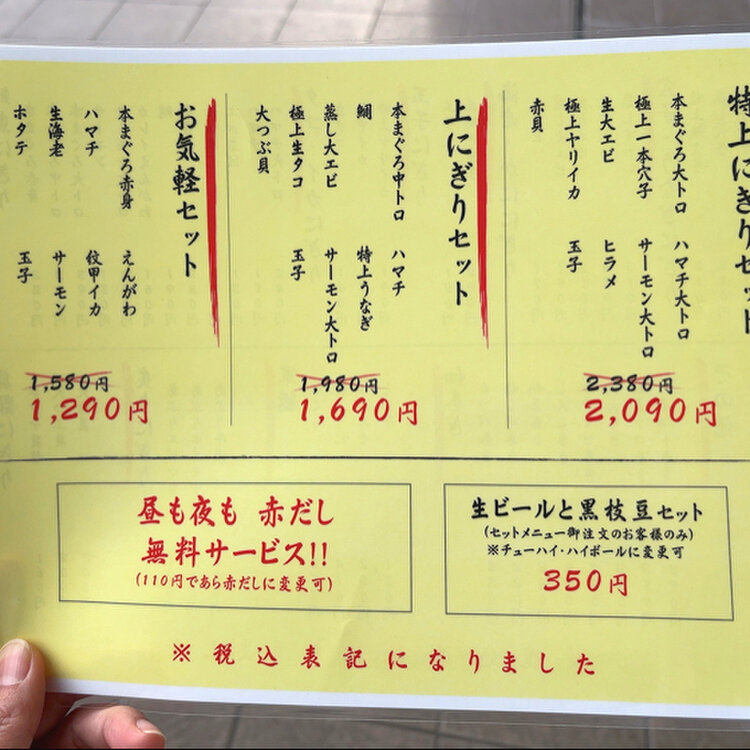 特上にぎりセット
本まぐろ大トロ ハマチ大トロ
極上一本穴子 サーモン大トロ
生大エビ ヒラメ
極上ヤリイカ 玉子
赤貝
2,380円
2,090円
上にぎりセット
本まぐろ中トロ ハマチ
鯛 特上うなぎ
蒸し大エビ サーモン大トロ
極上生タコ 玉子
大つぶ貝
1,980円
1,690円
お気軽セット
本まぐろ赤身 えんがわ
ハマチ 紋甲イカ
生海老 サーモン
ホタテ 玉子
1,580円
1,290円
昼も夜も 赤だし
無料サービス!!
(110円であら赤だしに変更可)
生ビールと黒枝豆セット
(セットメニュー御注文のお客様のみ)
※チューハイ・ハイボールに変更可
350円
※税込表記になりました